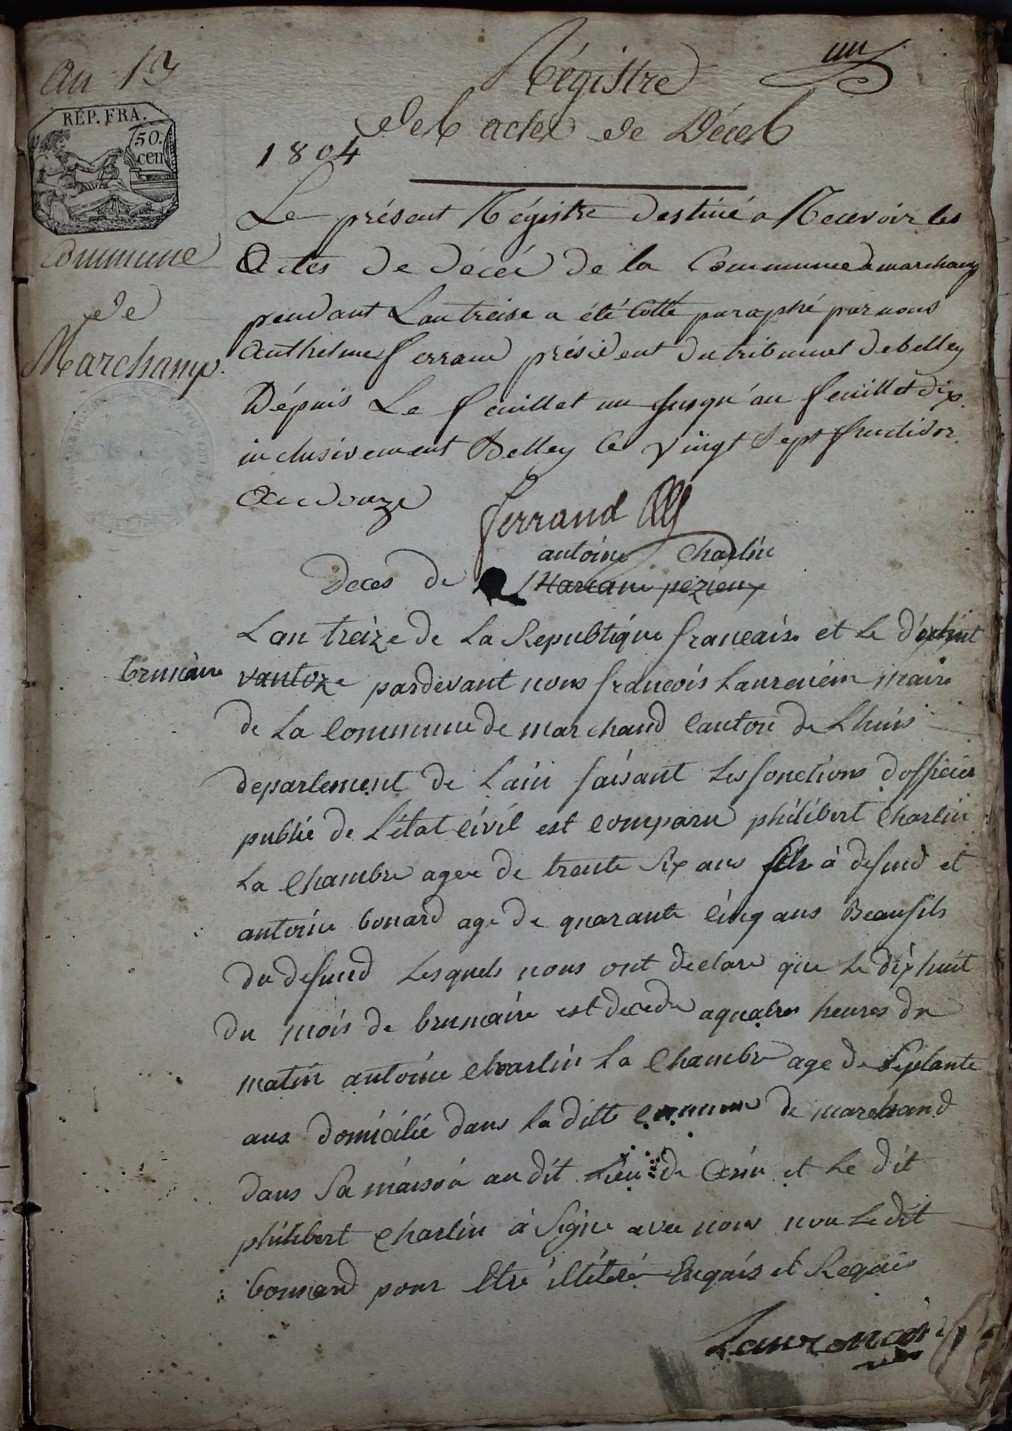 an 13
un
Régistre
des actes de Décès
REP. FRA.
50.
cen
1804
Commune
de
Marchamp.
Le présent Régistre destiné a Recevoir les
Actes de décés de la Commune de marchamp
pendant Lan treise a été cotté paraphé par nous
Anthelme ferrand président du tribunal de belley
Dépuis Le feuillet un jusqu'au feuillet dix
inclusivement Belley le vingt sept fructidor
An douze
ferrand
antoine Charlin
Deces de Mariane pezieux
Lan treize de La Republique francaise et le dixhuit
brumaire
vantoze pardevant nous francois Laurencin maire
de La Commune de marchand Canton de Lhuis
departement de Lain faisant Les fonctions dofficier
public de Létat Civil est Comparu philibert Charlin
La Chambre agee de trente six ans fils à defund et
antoine bonard age de quarante cinq ans Beaufils
du defund Lesquels nous ont declaré que Le dixhuit
du mois de brumaire est decede a quatres heures du
matin antoine charlin La Chambre age de septante
ans domicilié dans La ditte commune de marchand
dans Sa maison au dit Lieu de Cerin et Le dit
philibert Charlin à Signe avec nous non Le dit
bonnard pour Etre illiteré Enquis et Requis
Laurencin